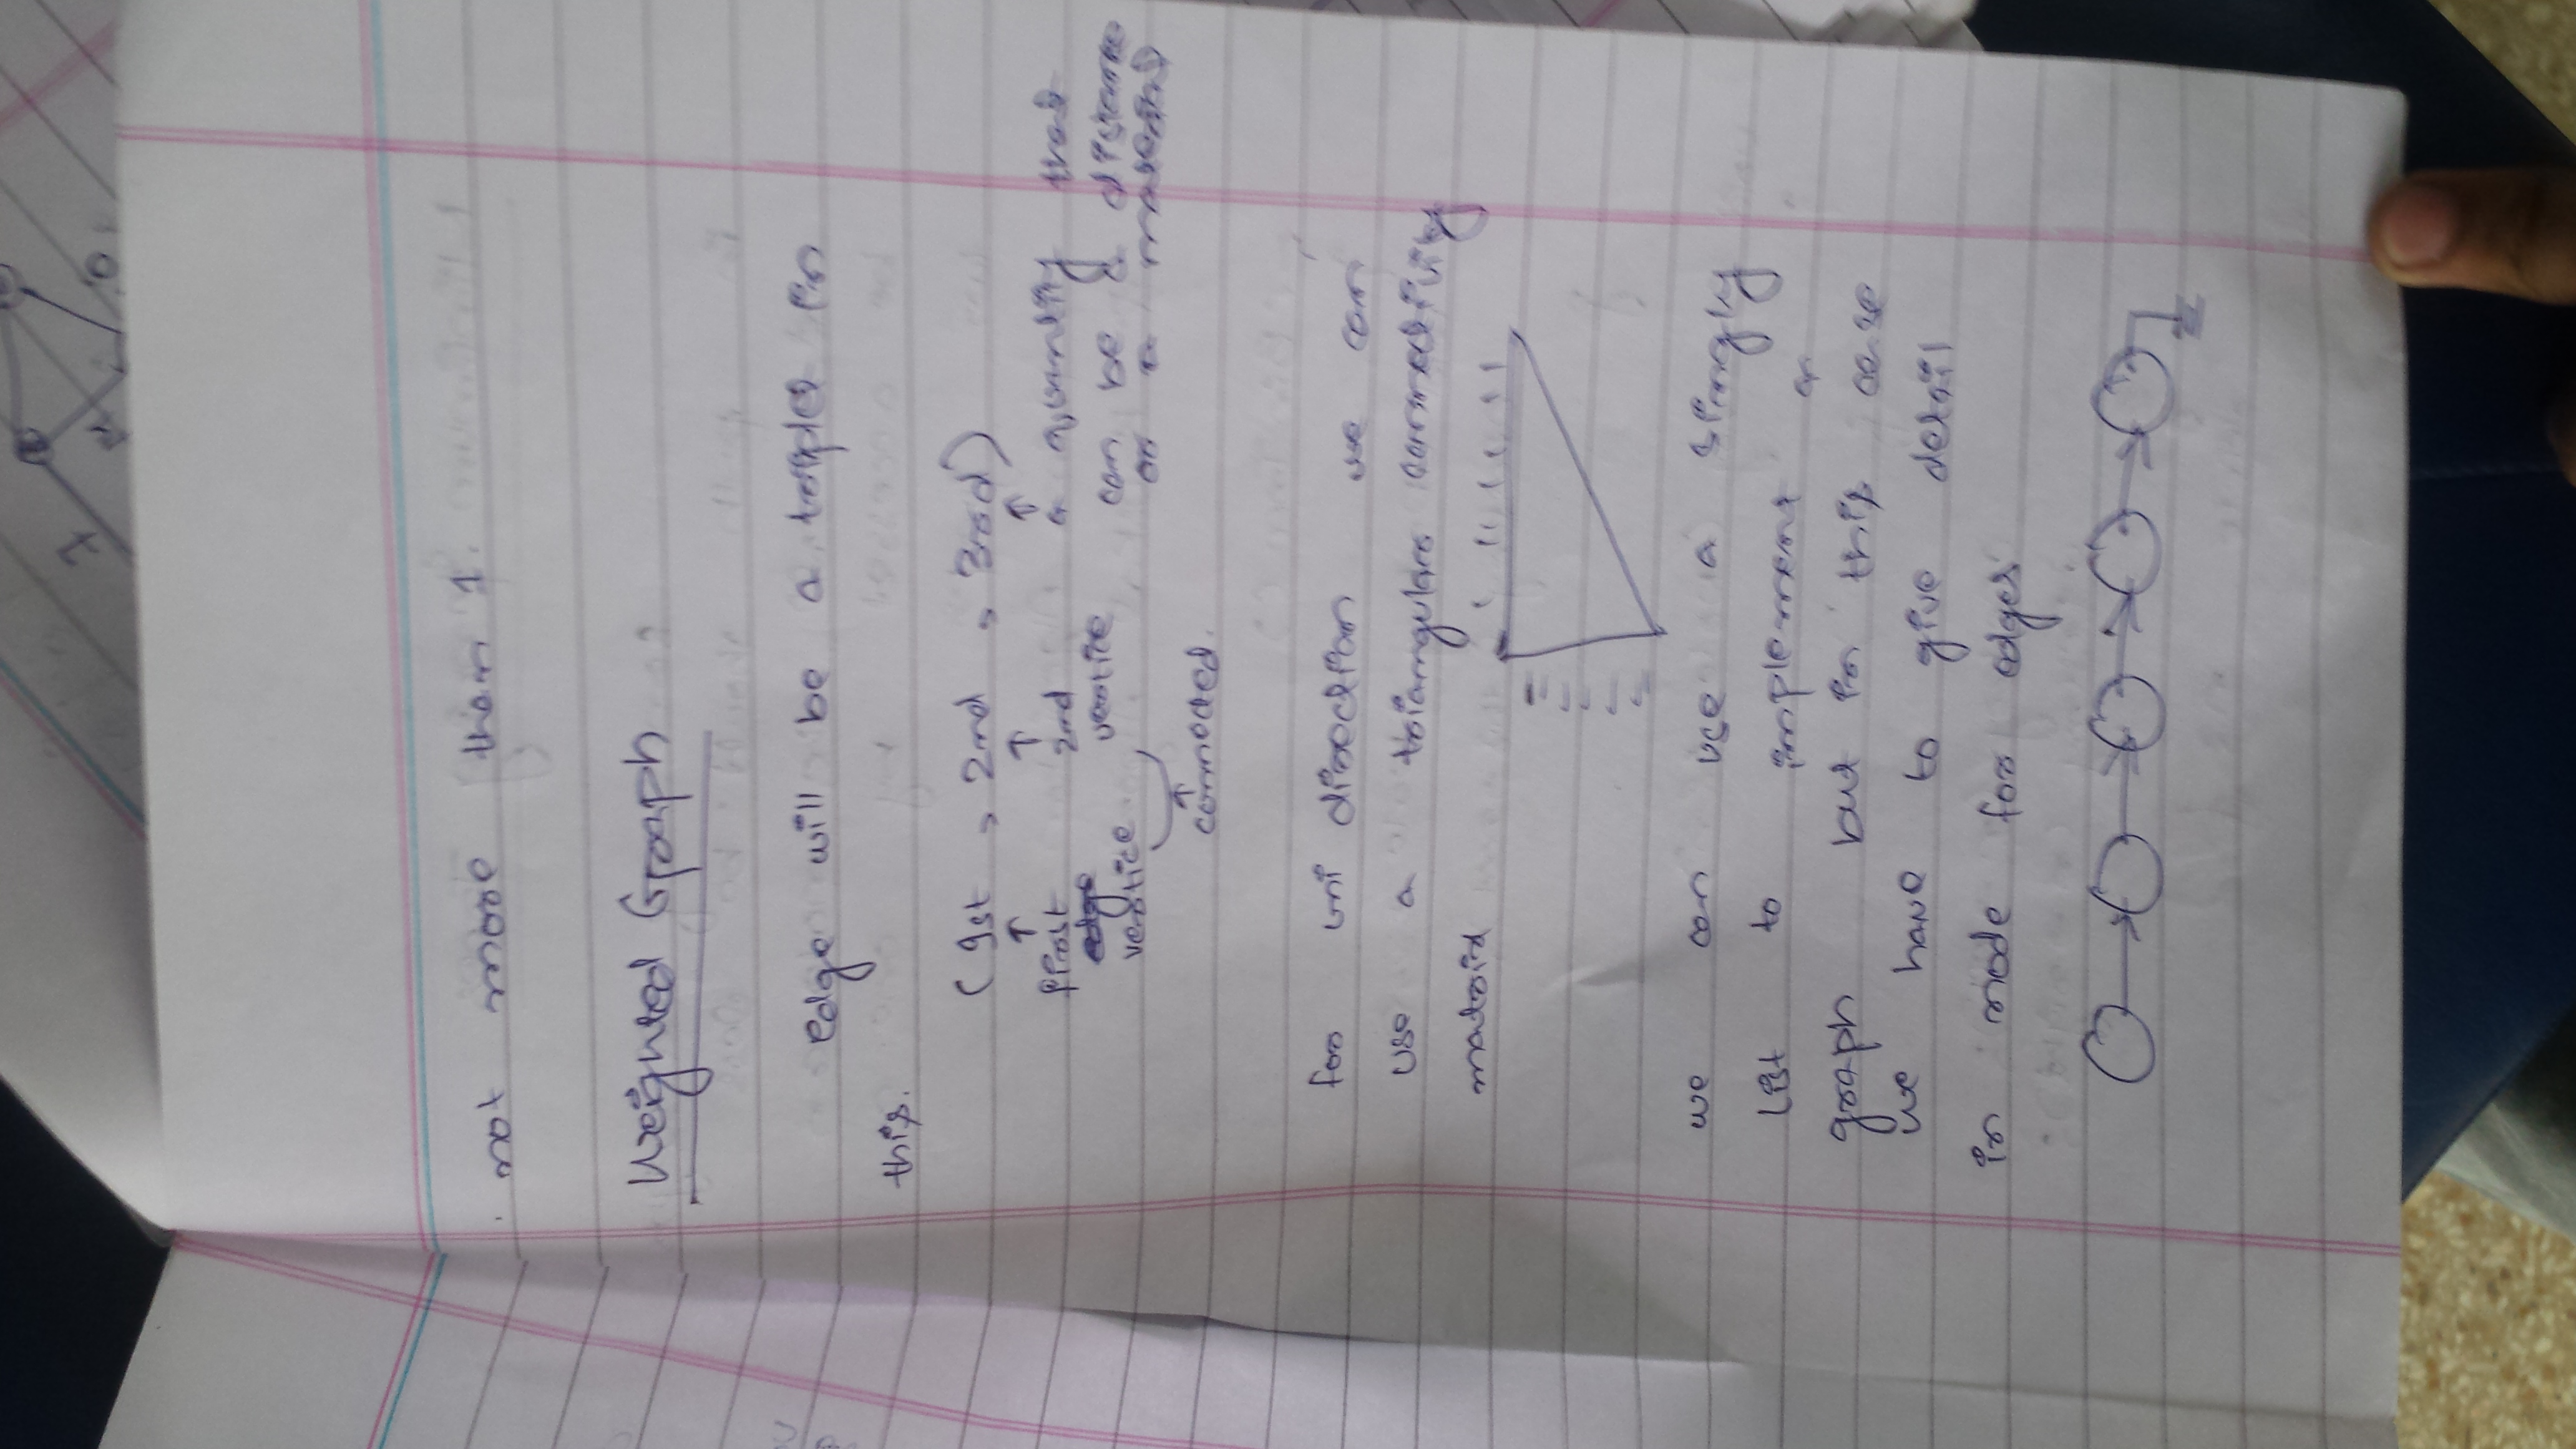 not more than 1.
Weighted Graph
edge will be a triplet in
this.
(1st , 2nd , 3rd)
first 2nd a quantity that
vertice vertice can be a distance
or a
connected.
for uni direction we can
use a triangular connectivity
we can use a singly
list to implement a
graph but in this case
we have to give detail
in node for edges